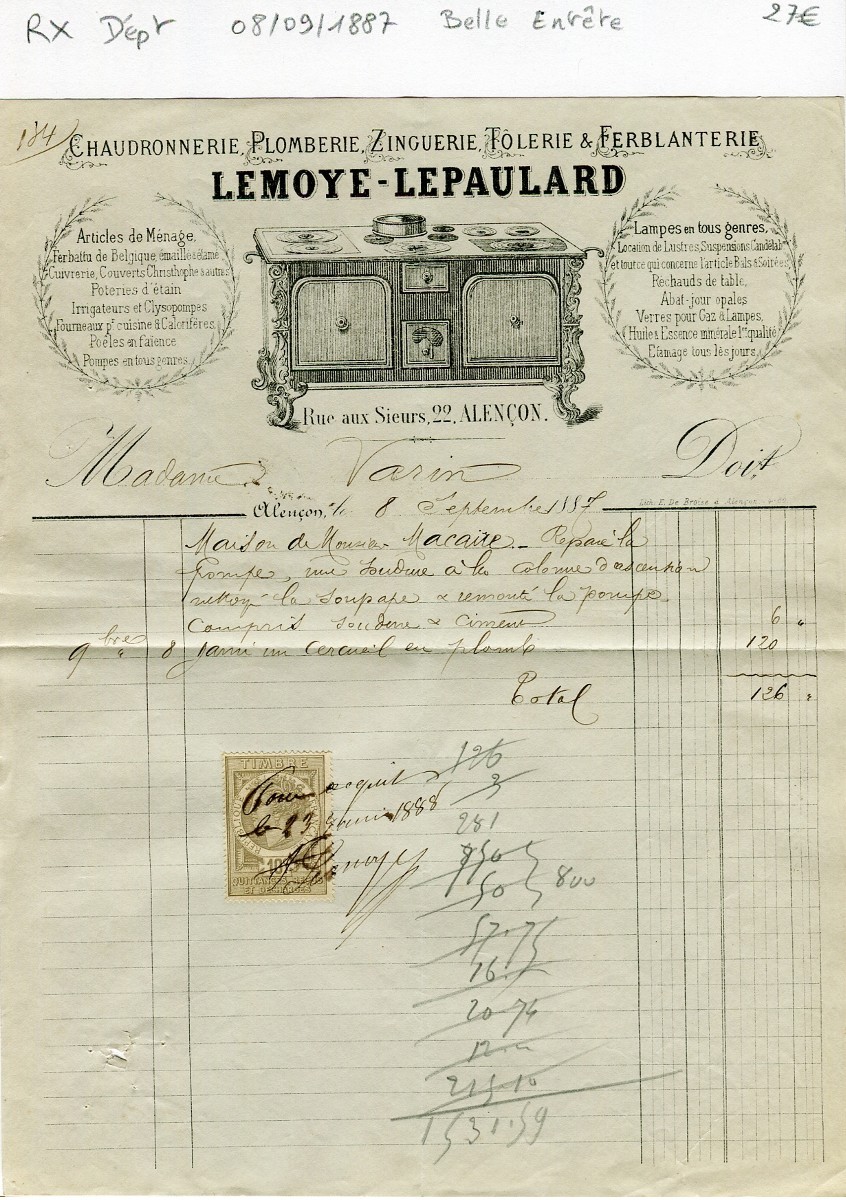 RX Dépt 08/09/1887 Belle Entête 27€
184
CHAUDRONNERIE, PLOMBERIE, ZINGUERIE, TÔLERIE & FERBLANTERIE
LEMOYE-LEPAULARD
Articles de Ménage,
Ferbattu de Belgique, émaillé & étamé
Cuivrerie, Couverts Christophe & autres
Poteries d'étain
Irrigateurs et Clysopompes
Fourneaux pr cuisine & Calorifères,
Poêles en faïence
Pompes en tous genres.
Lampes en tous genres,
Location de Lustres, Suspensions, Candélab
et tout ce qui concerne l'article Bals & Soirées
Rechauds de table,
Abat-jour opales
Verres pour Gaz & Lampes,
Huile & Essence minérale 1re qualité
Etamage tous les jours
Rue aux Sieurs, 22, ALENÇON.
Madame Varin Doit
Lith. E. De Broise à Alençon
Alençon, le 8 Septembre 1887
Maison de Monsieur Macaire. Reparé la
pompe, une soudure à la colonne d'ascension
nettoyé la soupape & remonté la pompe
compris soudure & ciment 6 "
9bre " 8 garni un cercueil en plomb 120
Total 126 "
TIMBRE
Pour acquit
le 23 1888
10
QUITTANCES REÇUS
ET DÉCHARGES
126
3
281
750
50 } 800
57.75
16.
20.74
12
1531.59